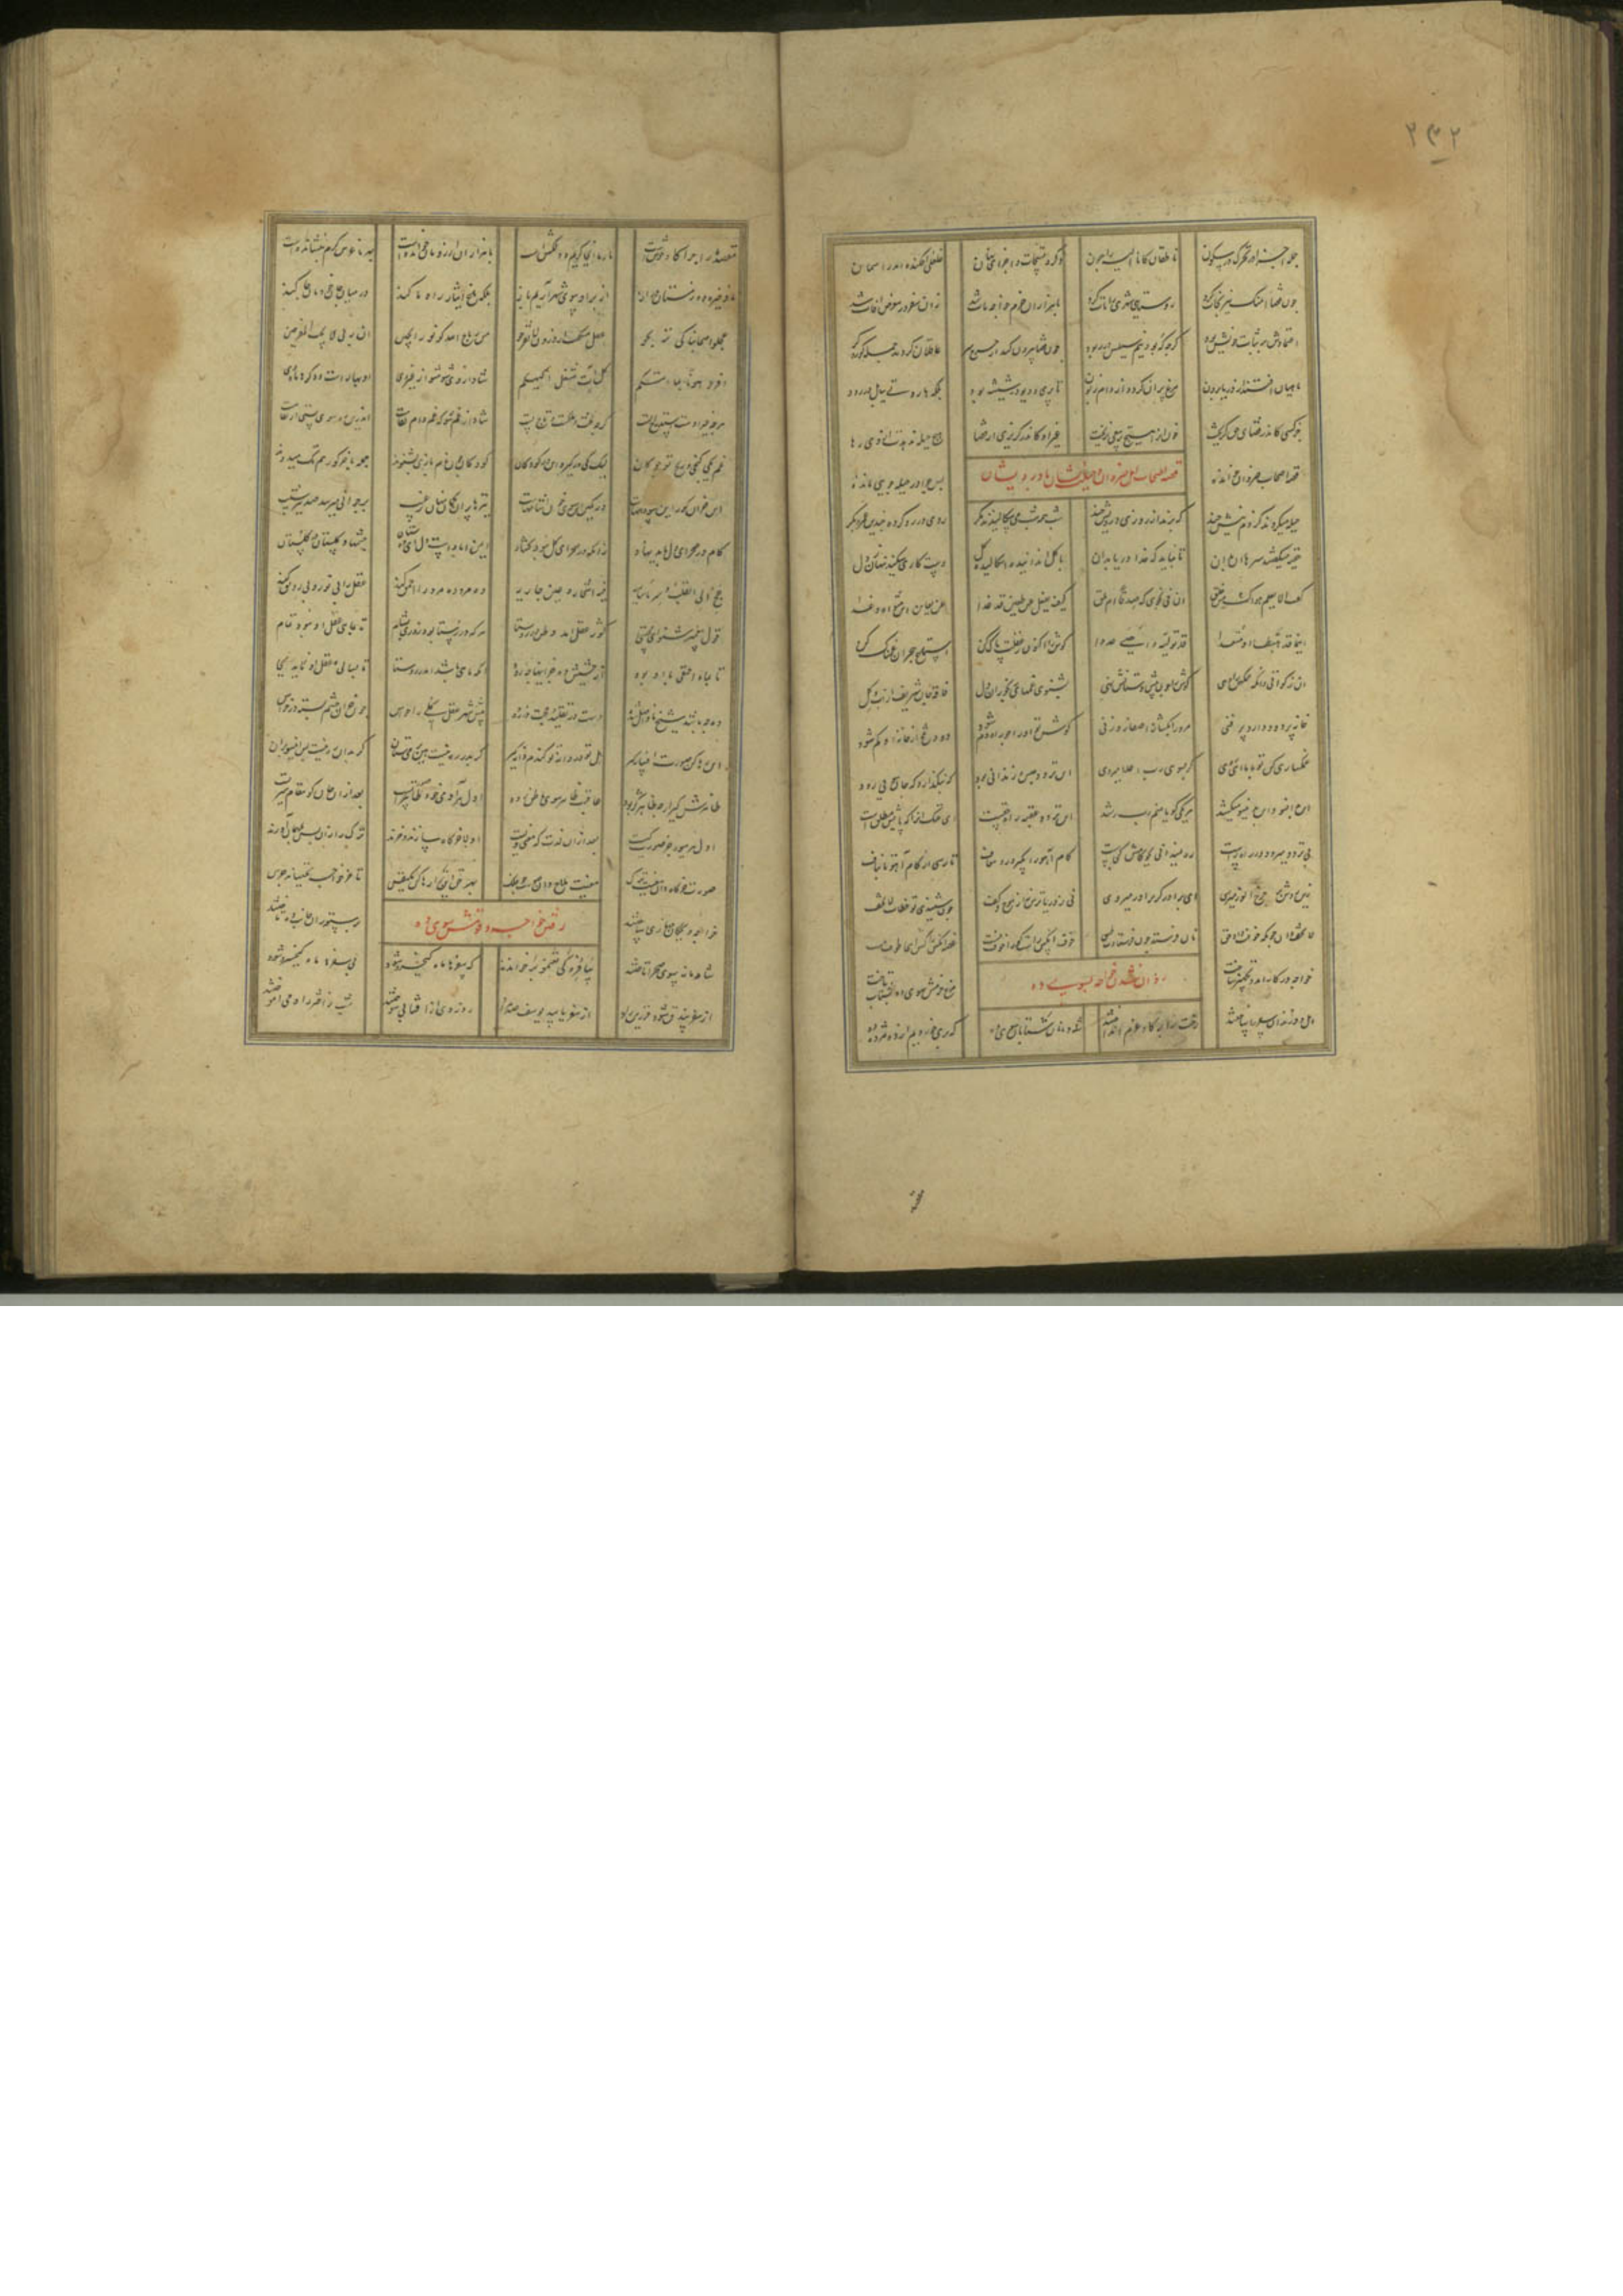 ۲۳۲
جمله اجزا در تحرک در سکون ناطقان کانا الیه راجعون ذکر و تسبیحات اجزای نهان غلغلی افکنده اندر آسمان
چون قضا آهنگ نیرنجات کرد روستایی شهریی را مات کرد با هزاران حزم خواجه مات شد زان سفر در معرض آفات شد
اعتمادش بر ثبات خویش بود گرچه که بود نیم سیلش در ربود چون قضا بیرون کند از چرخ سر عاقلان گردند جمله کور و کر
ماهیان افتند از دریا برون مرغ پران گردد از دام زبون تا پری و دیو در شیشه بود بلکه هاروتی ببابل در رود
جز کسی کاندر قضای حق گریخت خون او را هیچ تربیعی نریخت غیر آن که در گریزی از قضا هیچ حیله ندهدت از وی رها
قصه اصحاب ضروان خوانده پس چرا در حیله جویی مانده
قصه اصحاب اهل ضروان و حیلت ایشان با درویشان
حیله میکردند کزدم نیش چند که برند از روزی درویش چند شب همه شب می سگالیدند مکر روی در رو کرده چندین عمرو و بکر
خفیه میگفتند سرها آن بدان تا نباید که خدا دریابد آن با گل انداینده اسگالید گل دست کاری میکند پنهان ز دل
گفت الا یعلم هواک من خلق ان فی نجواک صدقا ام ملق کیف یغفل عن ظعین قد غدا من یعاین این مثواه غدا
اینما قد هبطا او صعدا قد تولیه و احصی عددا گوش را اکنون ز غفلت پاک کن استماع هجران غمناک کن
آن زکوتی دان که غمگین را دهی گوش را چون پیش دستانش نهی بشنوی غمهای رنجوران دل فاقه جان شریف از آب و گل
خانه پر دود دارد پر فنی مر ورا بگشا ز اصغا روزنی گوش تو او را چو راه دم شود دود تلخ از خانه او کم شود
غمگساری کن تو با ما ای روی گر بسوی رب اعلا میروی این تردد حبس و زندانی بود که بنگذارد که جان سویی رود
این بدین سو و آن بدان سو میکشد هر یکی گویا منم راه رشد این تردد عقبه راه حقست ای خنک آنرا که پایش مطلق است
بی تردد میرود در راه راست ره نمیدانی بجو گامش کجاست گام آهو را بگیر و رو معاف تا رسی از گام آهو تا بناف
زین روش بر اوج انور میروی ای برادر گر بر آذر میروی نی ز دریا ترس نی از موج و کف چون شنیدی تو خطاب لا تخف
لا تخف دان چونکه خوفت داد حق نان فرستد چون فرستادت طبق خوف آنکس راست کو را خوف نیست غصه آنکس را کش اینجا طوف نیست
خواجه در کار آمد و تجهیز ساخت مرغ عزمش سوی ده اشتاب تاخت
روان شدن خواجه بسوی ده
اهل و فرزندان سفر را ساختند رخت را بر گاو عزم انداختند شادمانان و شتابان سوی ده که بری خوردیم از ده مژده ده
مقصد ما را چراگاه خوشست یار ما آنجا کریم و دلکش است با هزاران آرزومان خوانده است بهر ما غرس کرم بنشانده است
ما ذخیره ده زمستان دراز از بر او سوی شهر آریم باز بلکه باغ ایثار راه ما کند در میان جان خودمان جا کند
عجلوا اصحابنا کی تربحوا عقل میگفت از درون لا تفرحوا من رباح الله کونوا رابحین ان ربی لا یحب الفرحین
افرحوا هونا بما آتیکم کل آت مشغل الهیکم شاد از وی شو مشو از غیر وی او بهارست و دگرها ماه دی
هر چه غیر اوست استدراج تست گرچه تخت و ملکتست و تاج تست شاد از غم شو که غم دام لقاست اندرین ره سوی پستی ارتقاست
غم یکی گنجی و رنج تو چو کان لیک کی درگیرد این در کودکان کودکان چون نام بازی بشنوند جمله با خر گور هم تک میدوند
ای خران کور این سو دامهاست در کمین این سوی خون آشامهاست تیرها پران کمان پنهان ز غیب بر جوانی میرسد صد تیر شیب
گام در صحرای دل باید نهاد زانکه در صحرای گل نبود گشاد ایمن آبادست دل ای دوستان چشمها و گلستان در گلستان
عج الی القلب و سر یا ساریه فیه اشجار و عین جاریه ده مرو ده مرد را احمق کند عقل را بی نور و بی رونق کند
قول پیغمبر شنو ای مجتبی گور عقل آمد وطن در روستا هر که در رستا بود روزی و شام تا بماهی عقل او نبود تمام
تا بماه احمقی با او بود از حشیش ده جز اینها چه درود که ماهی باشد اندر روستا
ده چه باشد شیخ ناواصل شده دست در تقلید و حجت در زده پیش شهر عقل کلی این حواس چون خران چشم بسته در خراس
این رها کن صورت افسانه گیر هل تو دردانه تو گندم دانه گیر گر بدر ره نیست هین بر میستان گر بدان ره نیست این سو بران
ظاهرش گیر ارچه ظاهر کژ پرد عاقبت ظاهر سوی باطن برد اول هر آدمی خود صورتست بعد از آن جان کو مقام سیرتست
اول هر میوه جز صورت کیست بعد از آن لذت که معنی ویست اولا خرگاه سازند و خرند ترک را زان پس بمهمان آورند
صورتت خرگاه دان معنیت ترک معنیت ملاح دان صورت چو فلک بهر حق این را رها کن یکنفس تا خر خواجه بجنباند جرس
خواجه و بچگان جهازی ساختند بر ستوران جانب ده تاختند
رفتن خواجه و قومش سوی ده
شادمانه سوی صحرا تاختند سافروا کی تغنموا بر خواندند کز سفرها ماه کیخسرو شود بی سفرها ماه کی خسرو شود
از سفر بیدق شود فرزین راد از سفر یابید یوسف صد مراد روز روی از آفتابی سوختند شب ز اختر راه می آموختند